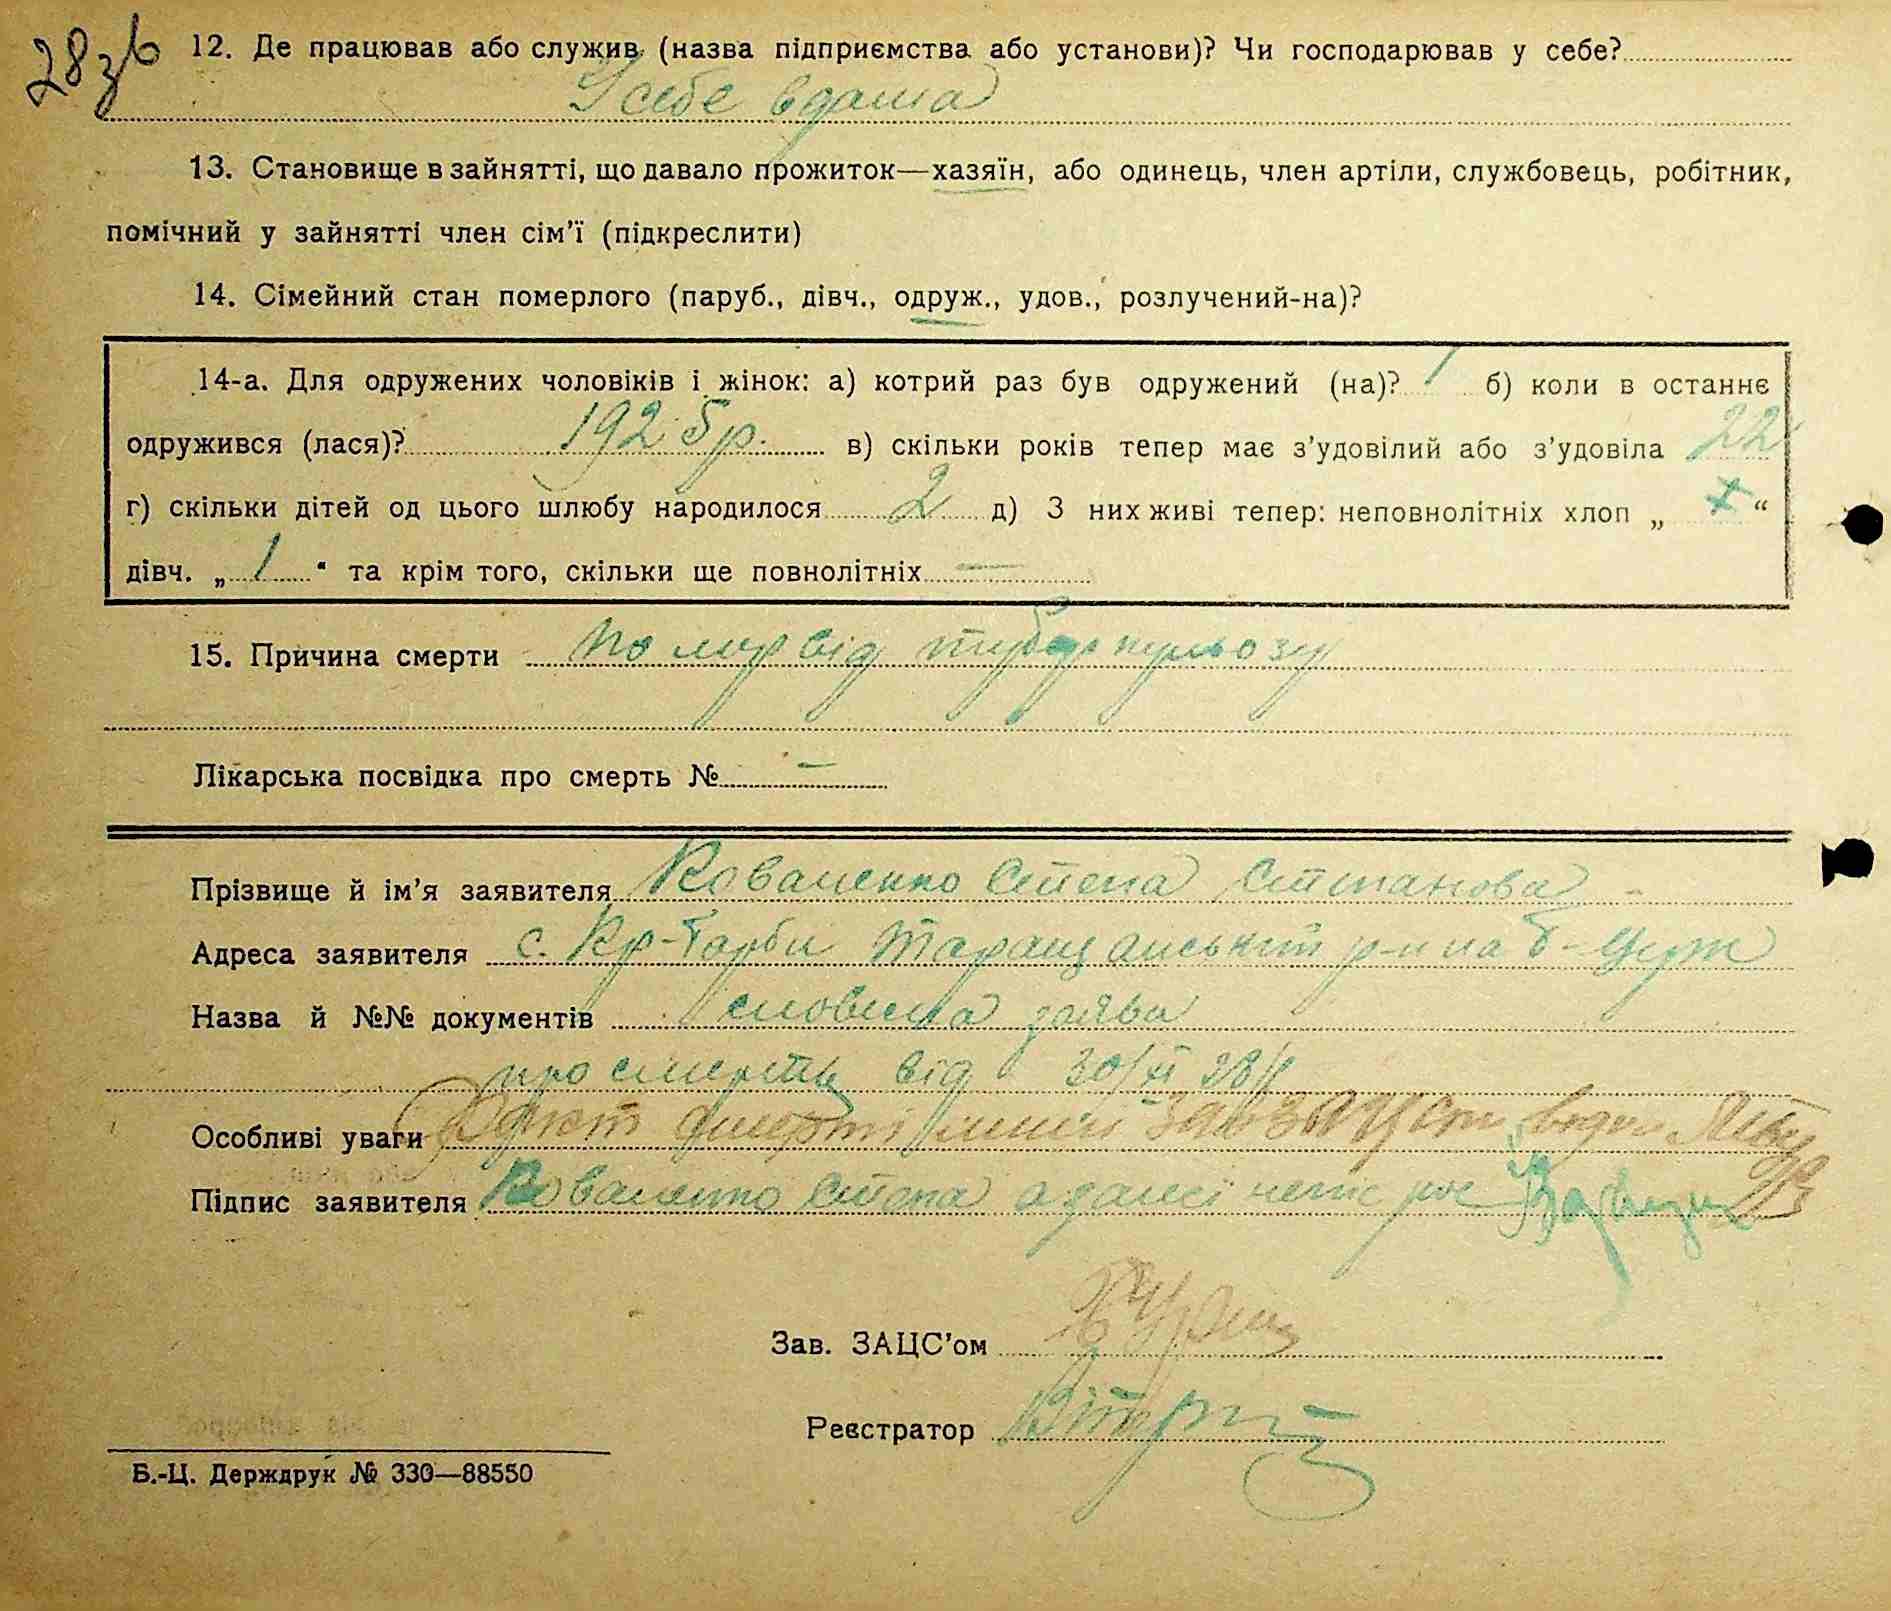 28 зв
12. Де працював або служив (назва підприємства або установи)? Чи господарював у себе?
У себе вдома
13. Становище в зайнятті, що давало прожиток—хазяїн, або одинець, член артіли, службовець, робітник,
помічний у зайнятті член сім'ї (підкреслити)
14. Сімейний стан померлого (паруб., дівч., одруж., удов., розлучений-на)?
14-а. Для одружених чоловіків і жінок: а) котрий раз був одружений (на)? 1 б) коли в останнє
одружився (лася)? 1925 р. в) скільки років тепер має з'удовілий або з'удовіла 22
г) скільки дітей од цього шлюбу народилося 2 д) З них живі тепер: неповнолітніх хлоп „ х “
дівч. „ 1 “ та крім того, скільки ще повнолітніх —
15. Причина смерти помер від туберкульозу
Лікарська посвідка про смерть № —
Прізвище й ім'я заявителя Коваленко Степа Степанова
Адреса заявителя с. Кр-
Назва й №№ документів словесна заява
про смерть від
Особливі уваги смерті
Підпис заявителя Коваленко Степа
Зав. ЗАЦС'ом
Реєстратор
Б.-Ц. Держдрук № 330—88550